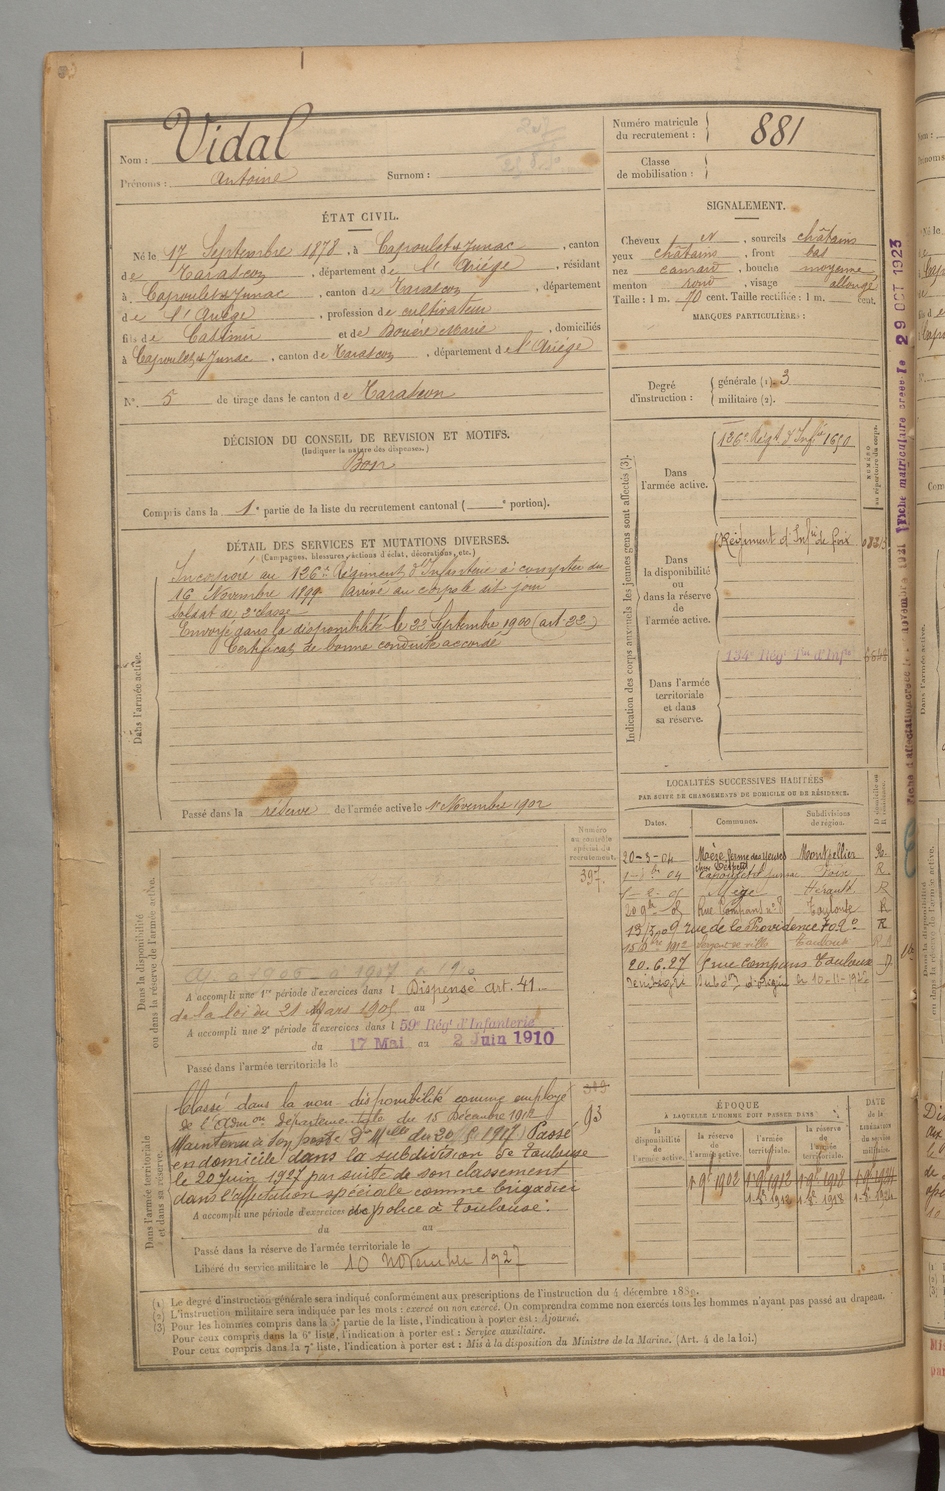 Nom : Vidal
Prénoms : Antoine Surnom :
Numéro matricule du recrutement : 881
Classe de mobilisation :
ÉTAT CIVIL.
Né le 17 Septembre 1878, à Capoulet & Junac, canton
de Tarascon, département de l'Ariège, résidant
à Capoulet & Junac, canton de Tarascon, département
de l'Ariège, profession de cultivateur
fils de Casimir et de Bouère Marie, domiciliés
à Capoulet & Junac, canton de Tarascon, département de l'Ariège
N° 5 de tirage dans le canton de Tarascon
DÉCISION DU CONSEIL DE REVISION ET MOTIFS.
(Indiquer la nature des dispenses.)
Bon
Compris dans la 1e partie de la liste du recrutement cantonal ( e portion).
SIGNALEMENT.
Cheveux et, sourcils châtains
yeux châtains, front bas
nez camard, bouche moyenne
menton rond, visage allongé
Taille : 1 m. 70 cent. Taille rectifiée : 1 m. cent.
MARQUES PARTICULIÈRES :
Degré d'instruction : générale (1). 3
militaire (2).
DÉTAIL DES SERVICES ET MUTATIONS DIVERSES.
(Campagnes, blessures, actions d'éclat, décorations, etc.)
Dans l'armée active.
Incorporé au 126e Régiment d'Infanterie à compter du
16 Novembre 1899. Arrivé au corps le dit jour
Soldat de 2e classe
Envoyé dans la disponibilité le 23 Septembre 1900 (art. 22)
Certificat de bonne conduite accordé
Passé dans la réserve de l'armée active le 1er Novembre 1902
Indication des corps auxquels les jeunes gens sont affectés (3).
NUMÉRO au répertoire du corps.
Dans l'armée active.
126e Régt d'Infie 1650
Dans la disponibilité ou dans la réserve de l'armée active.
Régiment d'Infie de Foix
Dans l'armée territoriale et dans sa réserve.
134e Régt Ter d'Infie
Fiche matriculaire créée le 29 OCT 1923
LOCALITÉS SUCCESSIVES HABITÉES
PAR SUITE DE CHANGEMENTS DE DOMICILE OU DE RÉSIDENCE.
Dates. Communes. Subdivisions de région. D. domicile ou R. résidence.
20-3-04 Mèze ferme des Yeuses Montpellier R.
04 Capoulet & Junac Foix R.
Mèze Hérault R
Rue Compans n° 8 Toulouse R
13/3/09 rue de la Providence To. R
1912 Sergent de ville Toulouse
20.6.27 8 rue Compans Toulouse D
Subdon d'origine le 10-11-1922
Dans la disponibilité ou dans la réserve de l'armée active.
Numéro au contrôle spécial du recrutement.
397.
A accompli une 1re période d'exercices dans l Dispensé art. 41
de la loi du 21 Mars 1905 au
A accompli une 2e période d'exercices dans l 59e Régt d'Infanterie
du 17 Mai au 2 Juin 1910
Passé dans l'armée territoriale le
Dans l'armée territoriale et dans sa réserve.
Classé dans la non-disponibilité comme employé
de l'Admon Départementale du 15 Décembre 1912
Maintenu à son poste Don Mlle du 20/8 1917. Passé
en domicile dans la subdivision de Toulouse
le 20 juin 1927 par suite de son classement
dans l'affectation spéciale comme brigadier
de police à Toulouse.
93
A accompli une période d'exercices
du au
Passé dans la réserve de l'armée territoriale le
Libéré du service militaire le 10 novembre 1927
ÉPOQUE
À LAQUELLE L'HOMME DOIT PASSER DANS :
DATE de la libération du service militaire.
la disponibilité de l'armée active. la réserve de l'armée active. l'armée territoriale. la réserve de l'armée territoriale.
1. 9bre 1902 1. 9bre 1912 1. 9bre 1918 1. 9bre 1924
(1) Le degré d'instruction générale sera indiqué conformément aux prescriptions de l'instruction du 4 décembre 1889.
(2) L'instruction militaire sera indiquée par les mots : exercé ou non exercé. On comprendra comme non exercés tous les hommes n'ayant pas passé au drapeau.
(3) Pour les hommes compris dans la 5e partie de la liste, l'indication à porter est : Ajourné.
Pour ceux compris dans la 6e liste, l'indication à porter est : Service auxiliaire.
Pour ceux compris dans la 7e liste, l'indication à porter est : Mis à la disposition du Ministre de la Marine. (Art. 4 de la loi.)